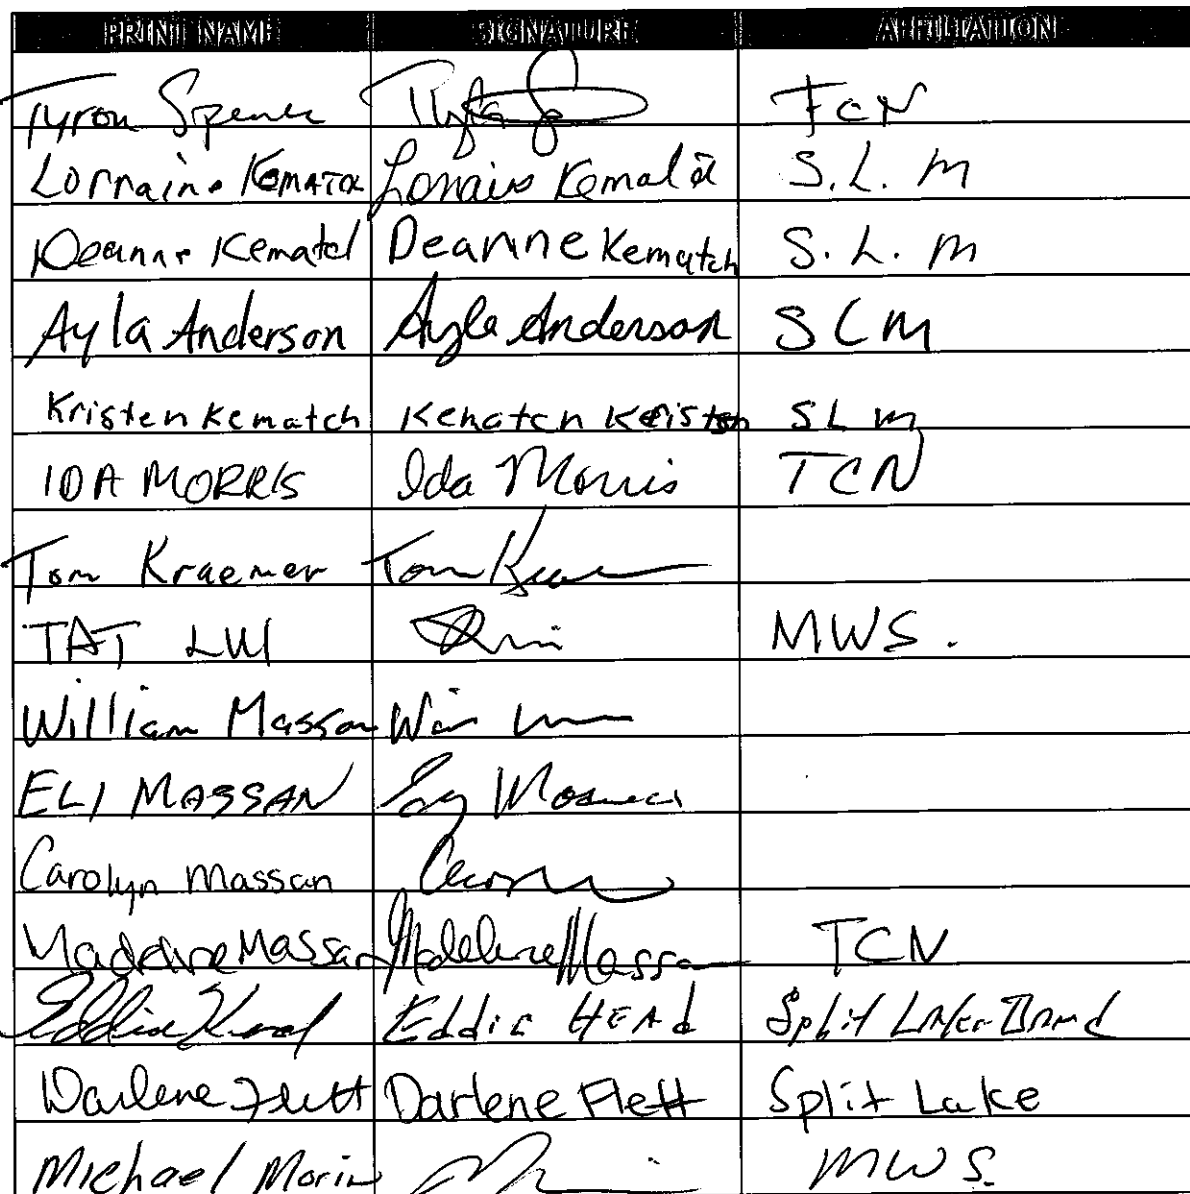 PRINT NAME SIGNATURE AFFILIATION
Tyron Spence TCN
Lorraine Kematch Lorraine Kematch S.L.M
Deanne Kematch Deanne Kematch S.L.M
Ayla Anderson Ayla Anderson SLM
Kristen Kematch Kematch Kristen SLM
IDA MORRIS Ida Morris TCN
Tom Kraemer Tom
TAT LUI MWS.
William Massan
ELI MASSAN
Carolyn Massan
Madeline Massan Madeline Massan TCN
Eddie Head Eddie HEAd Split Lake Band
Darlene Flett Darlene Flett Split Lake
Michael Morin MWS.